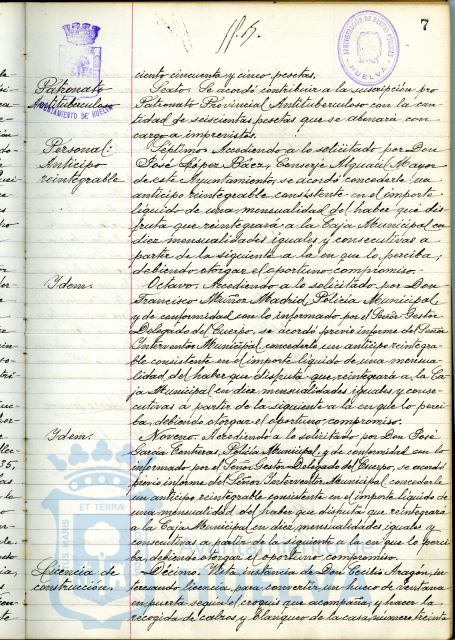 7
AYUNTAMIENTO DE HUELVA
HUELVA
Patronato
Antituberculoso
ciento cincuenta y cinco pesetas.
Sexto. Se acordó contribuir a la suscripción pro
Patronato Provincial Antituberculoso con la can-
tidad de seiscientas pesetas que se abonará con
cargo a imprevistos.
Personal:
Anticipo
reintegrable
Séptimo. Accediendo a lo solicitado por Don
José López Báez, Conserje Alguacil Mayor
de este Ayuntamiento, se acordó concederle un
anticipo reintegrable consistente en el importe
líquido de una mensualidad del haber que dis-
fruta que reintegrará a la Caja Municipal en
diez mensualidades iguales y consecutivas a
partir de la siguiente a la en que lo perciba,
debiendo otorgar el oportuno compromiso.
Idem.
Octavo. Accediendo a lo solicitado por Don
Francisco Muñoz Madrid, Policía Municipal,
y de conformidad con lo informado por el Señor Gestor
Delegado del Cuerpo, se acordó previo informe del Señor
Interventor Municipal, concederle un anticipo reintegra-
ble consistente en el importe líquido de una mensua-
lidad del haber que disfruta que reintegrará a la Ca-
ja Municipal en diez mensualidades iguales y conse-
cutivas a partir de la siguiente a la en que lo perci-
ba, debiendo otorgar el oportuno compromiso.
Idem.
Noveno. Accediendo a lo solicitado por Don José
García Contreras, Policía Municipal, y de conformidad con lo
informado por el Señor Gestor Delegado del Cuerpo, se acordó
previo informe del Señor Interventor Municipal concederle
un anticipo reintegrable consistente en el importe líquido de
una mensualidad del haber que disfruta que reintegrará
a la Caja Municipal en diez mensualidades iguales y
consecutivas a partir de la siguiente a la en que lo perci-
ba, debiendo otorgar el oportuno compromiso.
Licencia de
construcción.
Décimo. Vista instancia de Don Cecilio Aragón, in-
teresando licencia para convertir un hueco de ventana
en puerta según el croquis que acompaña, y hacer la
recogida de cabros, y blanqueo de la casa número treinta
ET TERRAE